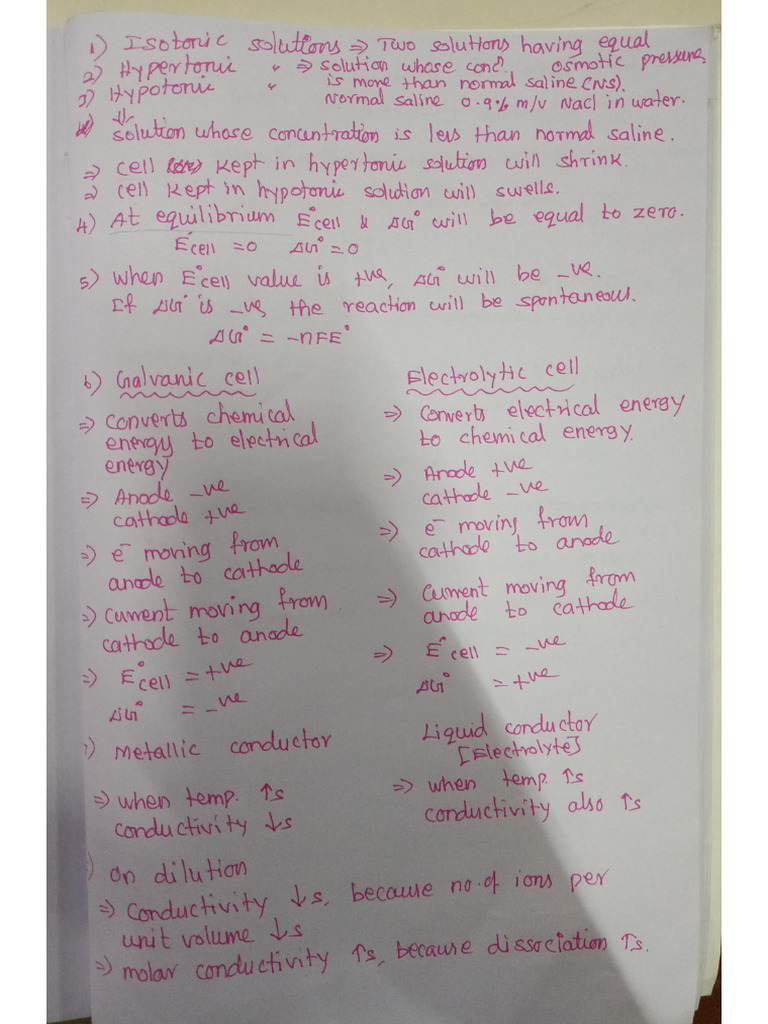 1) Isotonic solutions ⇒ Two solutions having equal
osmotic pressure
2) Hypertonic " ⇒ solution whose concn.
is more than normal saline (NS).
3) Hypotonic " Normal saline 0.9% m/v NaCl in water.
⇓
solution whose concentration is less than normal saline.
⇒ cell kept in hypertonic solution will shrink.
⇒ cell kept in hypotonic solution will swells.
4) At equilibrium E°cell & ΔG° will be equal to zero.
E°cell = 0 ΔG° = 0
5) when E°cell value is +ve, ΔG° will be -ve.
If ΔG° is -ve, the reaction will be spontaneous.
ΔG° = -nFE°
6) Galvanic cell
⇒ converts chemical
energy to electrical
energy
⇒ Anode -ve
cathode +ve
⇒ e⁻ moving from
anode to cathode
⇒ current moving from
cathode to anode
⇒ E°cell = +ve
ΔG° = -ve
Electrolytic cell
⇒ converts electrical energy
to chemical energy.
⇒ Anode +ve
cathode -ve
⇒ e⁻ moving from
cathode to anode
⇒ current moving from
anode to cathode
⇒ E°cell = -ve
ΔG° = +ve
) Metallic conductor
⇒ when temp. ↑s
conductivity ↓s
Liquid conductor
[Electrolyte]
⇒ when temp. ↑s
conductivity also ↑s
) on dilution
⇒ conductivity ↓s, because no. of ions per
unit volume ↓s
⇒ molar conductivity ↑s, because dissociation ↑s.